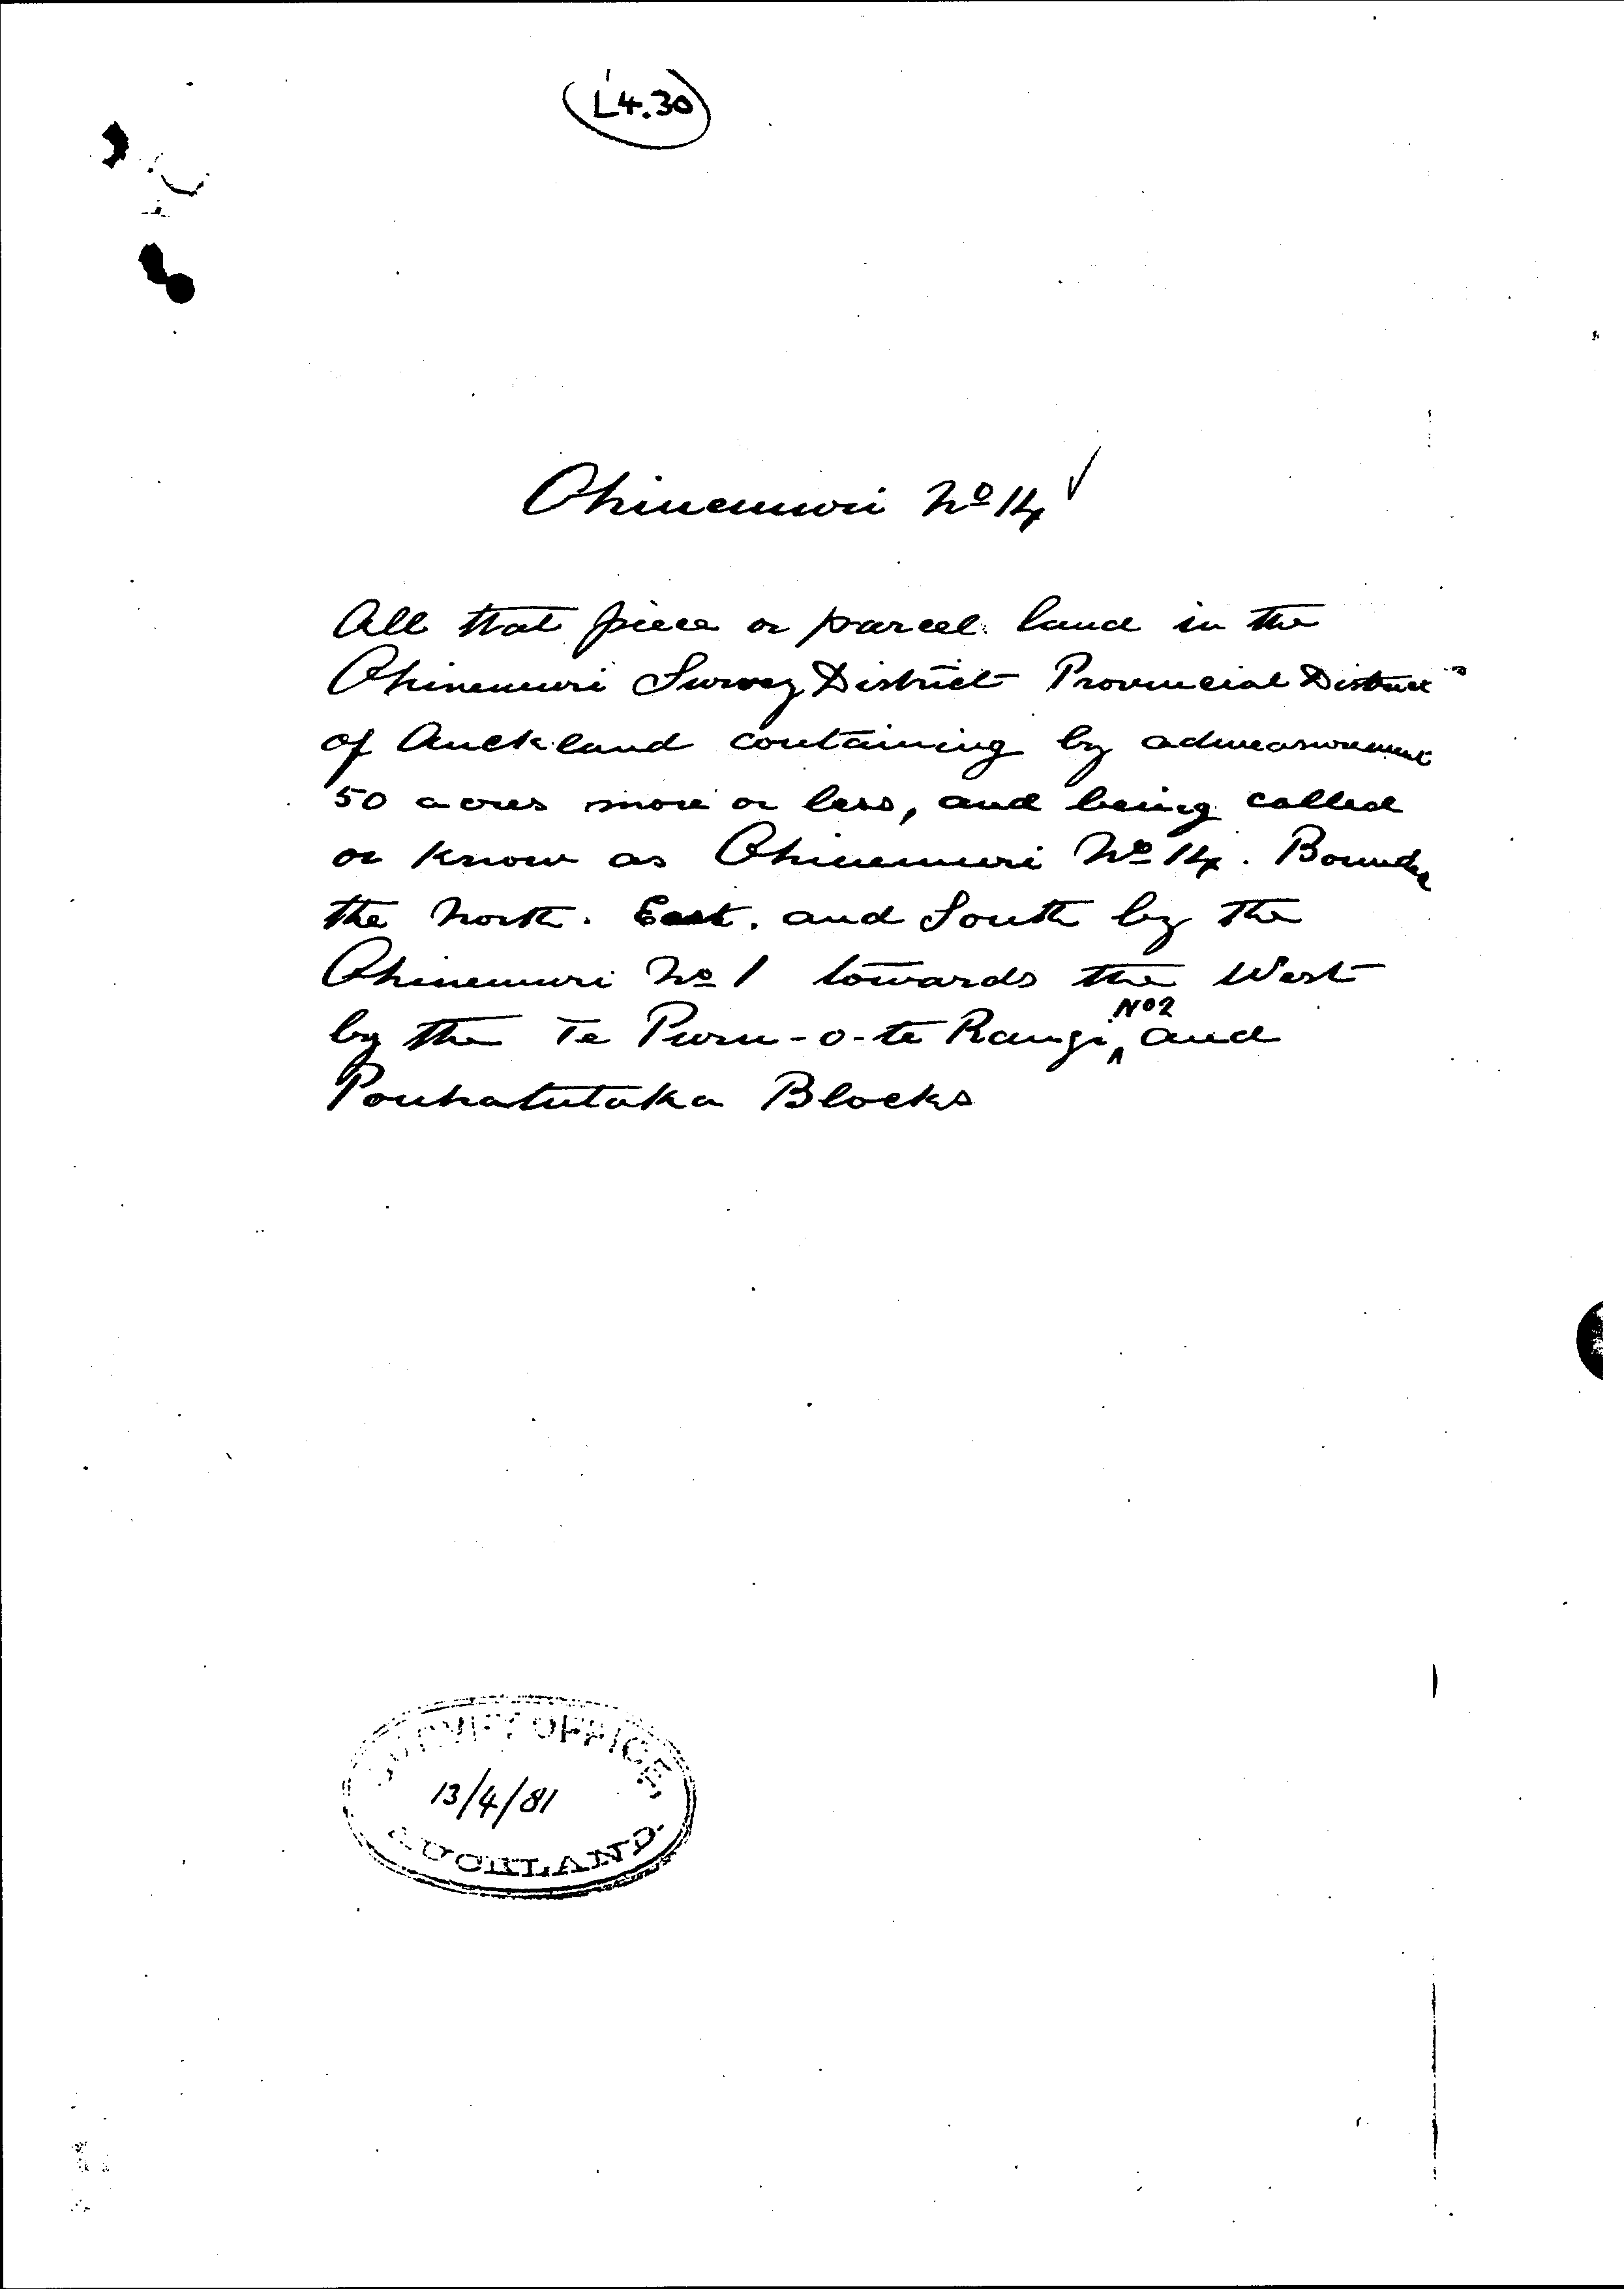 L4.30
Ohinemuri No 14 ✓
All that piece or parcel land in the
Ohinemuri Survey District Provincial District
of Auckland containing by admeasurement
50 acres more or less, and being called
or know as Ohinemuri No 14. Bounded
the North. East. and South by the
Ohinemuri No 1 towards the West
by the Te Puru-o-te Rangi No 2 and
Pouhatutaka Blocks
SURVEY OFFICE
13/4/81
AUCKLAND.